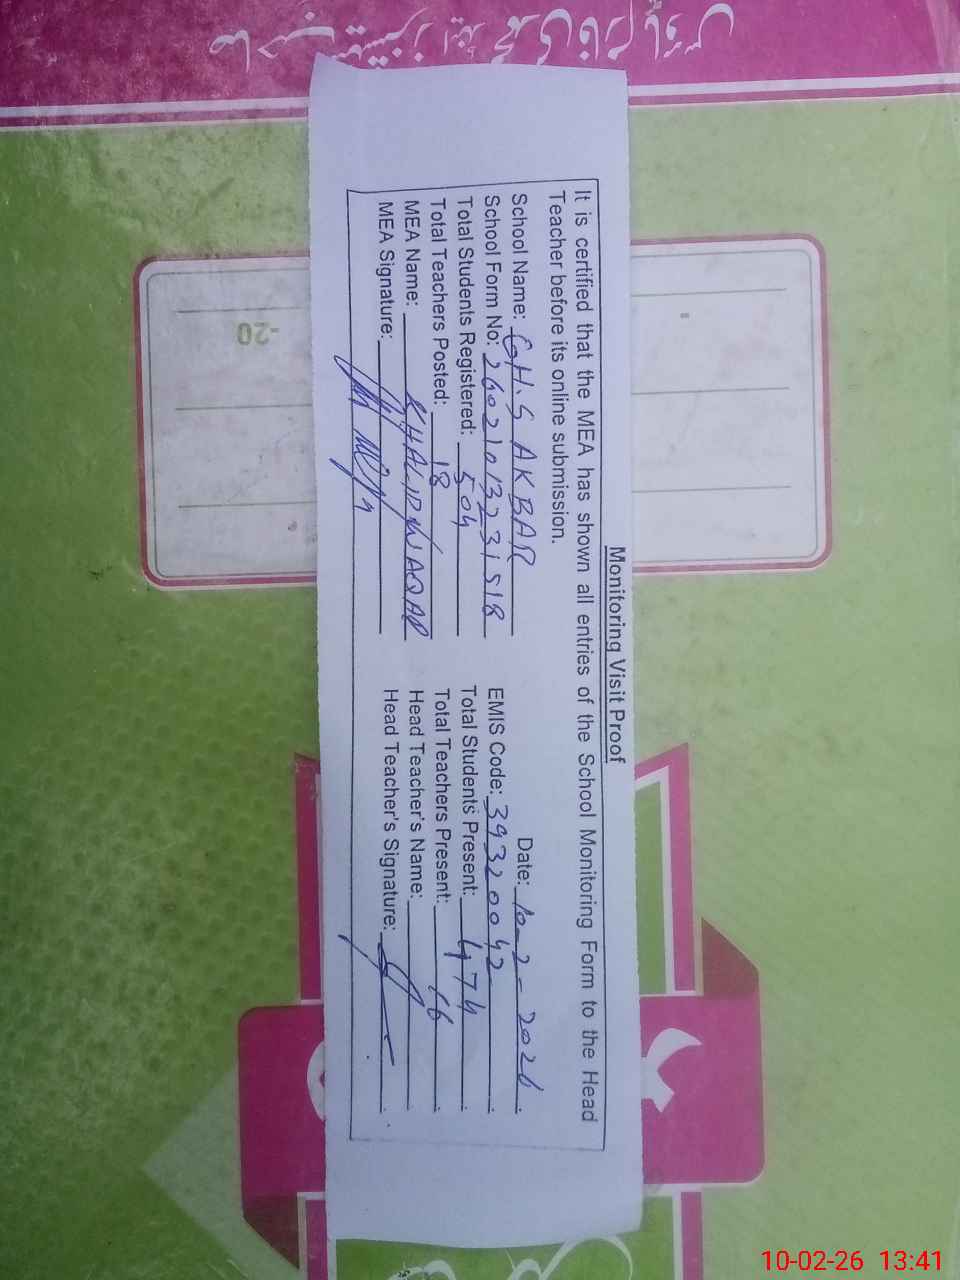 Monitoring Visit Proof
It is certified that the MEA has shown all entries of the School Monitoring Form to the Head
Teacher before its online submission.
Date: 10-2-2026
School Name: GH.S AKBAR
School Form No: 26021013231518 EMIS Code: 39320042
Total Students Registered: 504 Total Students Present: 474
Total Teachers Posted: 18 Total Teachers Present: 16
MEA Name: KHALID WAQAR Head Teacher's Name:
MEA Signature: Head Teacher's Signature:
-20
10-02-26 13:41